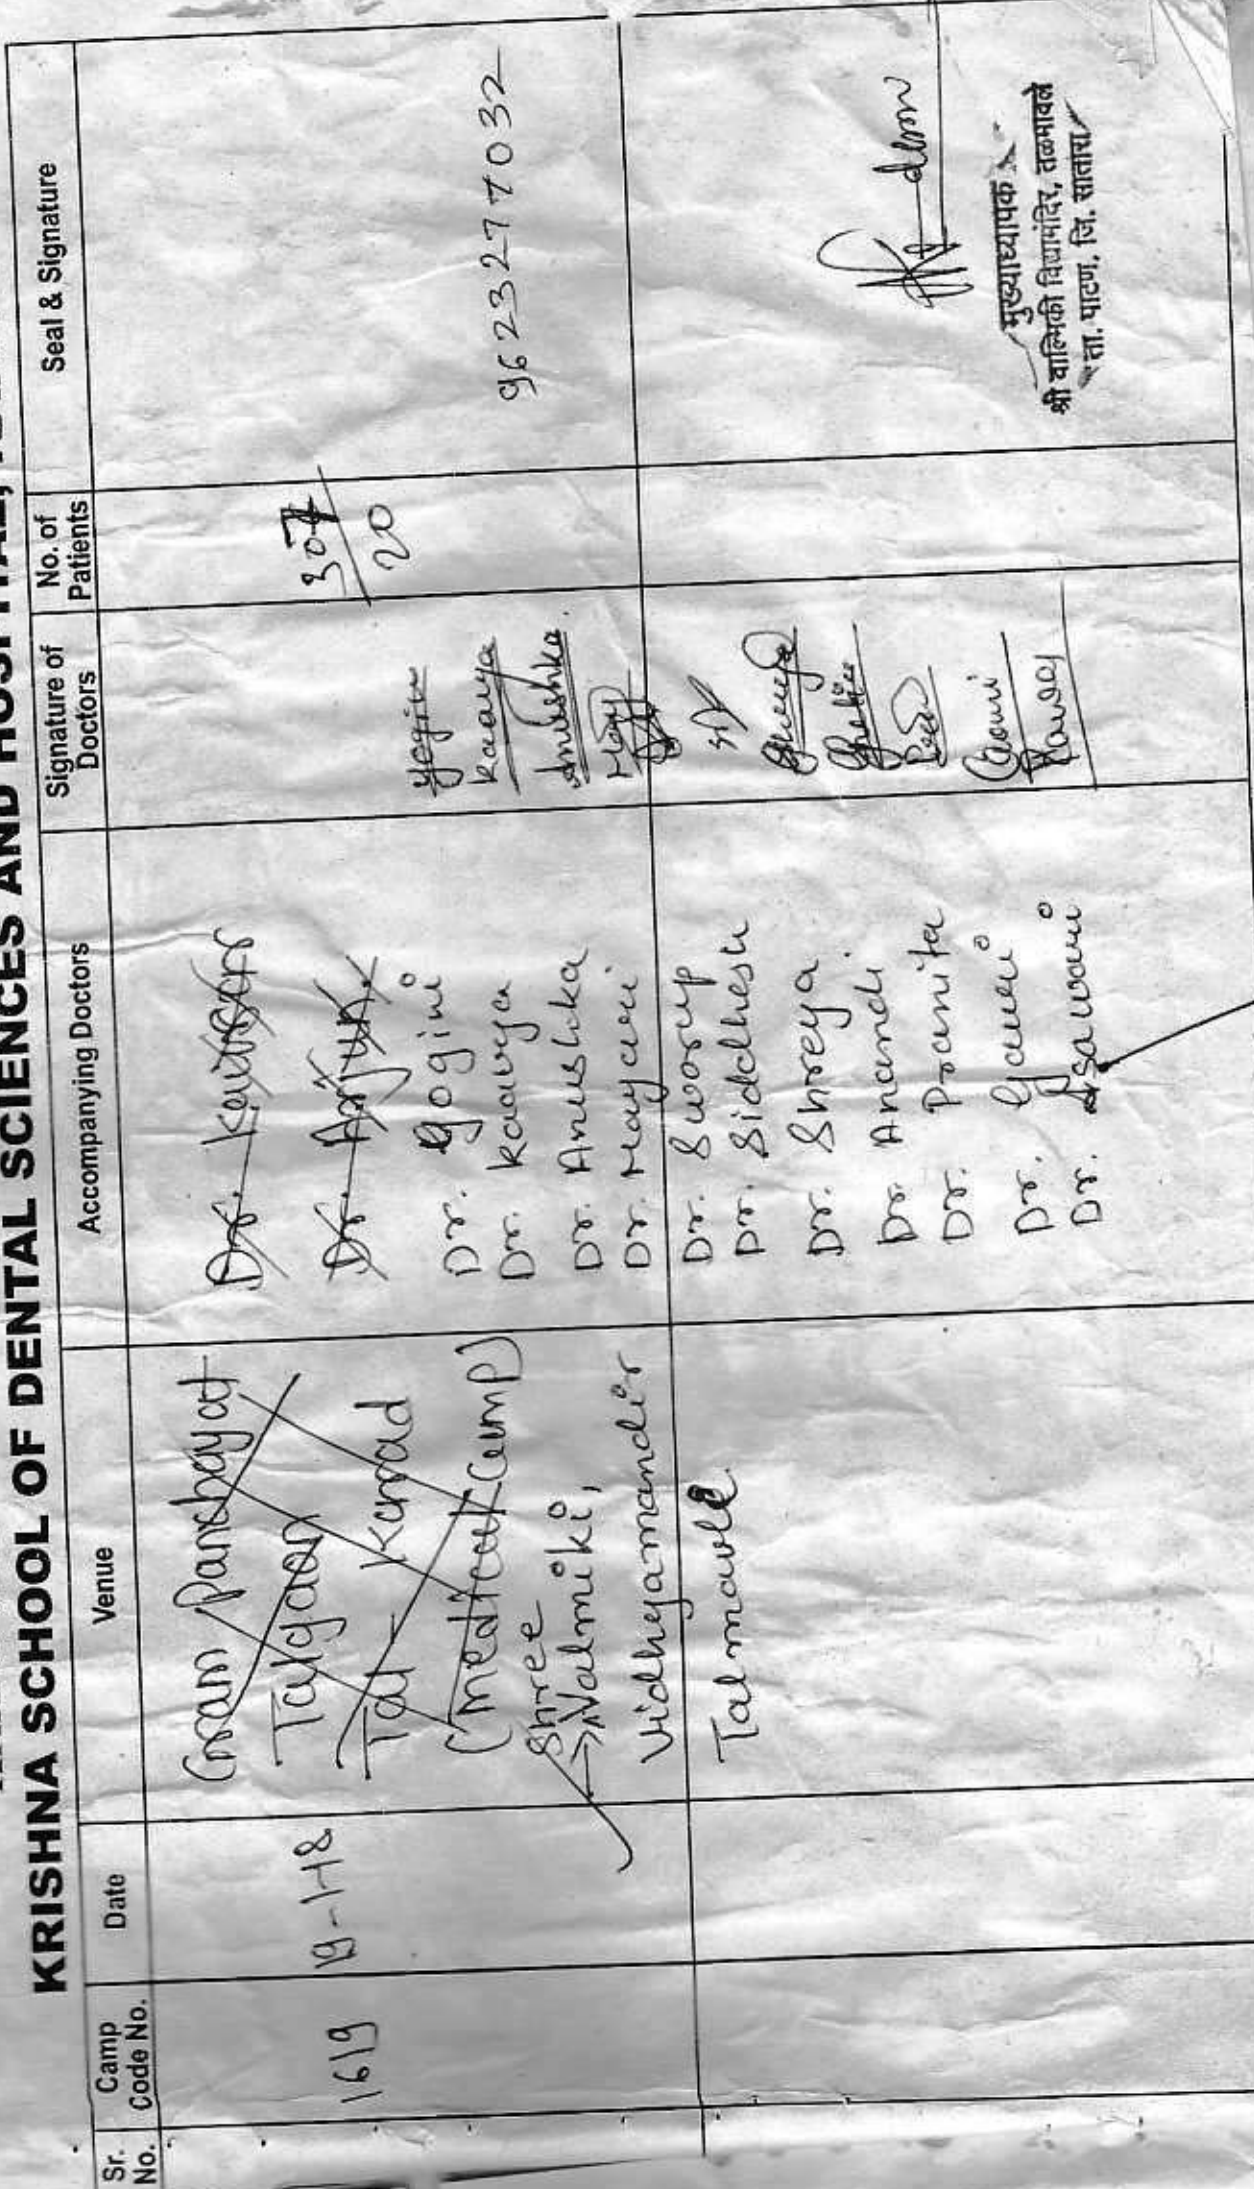 KRISHNA SCHOOL OF DENTAL SCIENCES AND HOSPITAL,
Sr. No.
Camp Code No.
Date
Venue
Accompanying Doctors
Signature of Doctors
No. of Patients
Seal & Signature
1619
19-1-18
Gram Panchayat
Talgaon
Tal - Karad
(medical camp)
Shree
Valmiki,
Vidhyamandir
Talmavle
Dr.
Dr. Arjun.
Dr. Yogini
Dr. Kaavya
Dr. Anushka
Dr. Mayauri
Dr. Swarup
Dr. Siddhesh
Dr. Shreya
Dr. Anandi.
Dr. Pramita
Dr. Gauri
Dr. Asawari
Yogini
Kaavya
Anushka.
307
20
9623277032
मुख्याध्यापक
श्री वाल्मिकी विद्यामंदिर, तळमावले
ता. पाटण, जि. सातारा